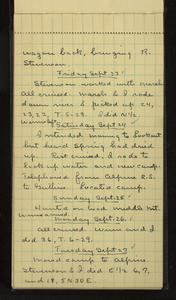 wagons back, bringing R.
Stevenson.
Friday Sept. 23
Stevenson worked with March
All cruised. March & I rode
down river & picked up 24,
23, 22, T. 5-28. I did N½
Saturday Sept. 24
I intended moving to Lookout
but heard spring had dried
up. Put cruised, I rode to
look up water and new camp.
Telephoned from Alpine R.S.
to Located camp.
Sunday Sept. 25
Hunted on head middle
Monday Sept. 26.
All cruised. Winn and I
did 36, T. 6-29.
Tuesday Sept. 27
Moved camp to Alpine.
Stevenson & I did E½ 6, 7,
and 18, 5N 30 E.